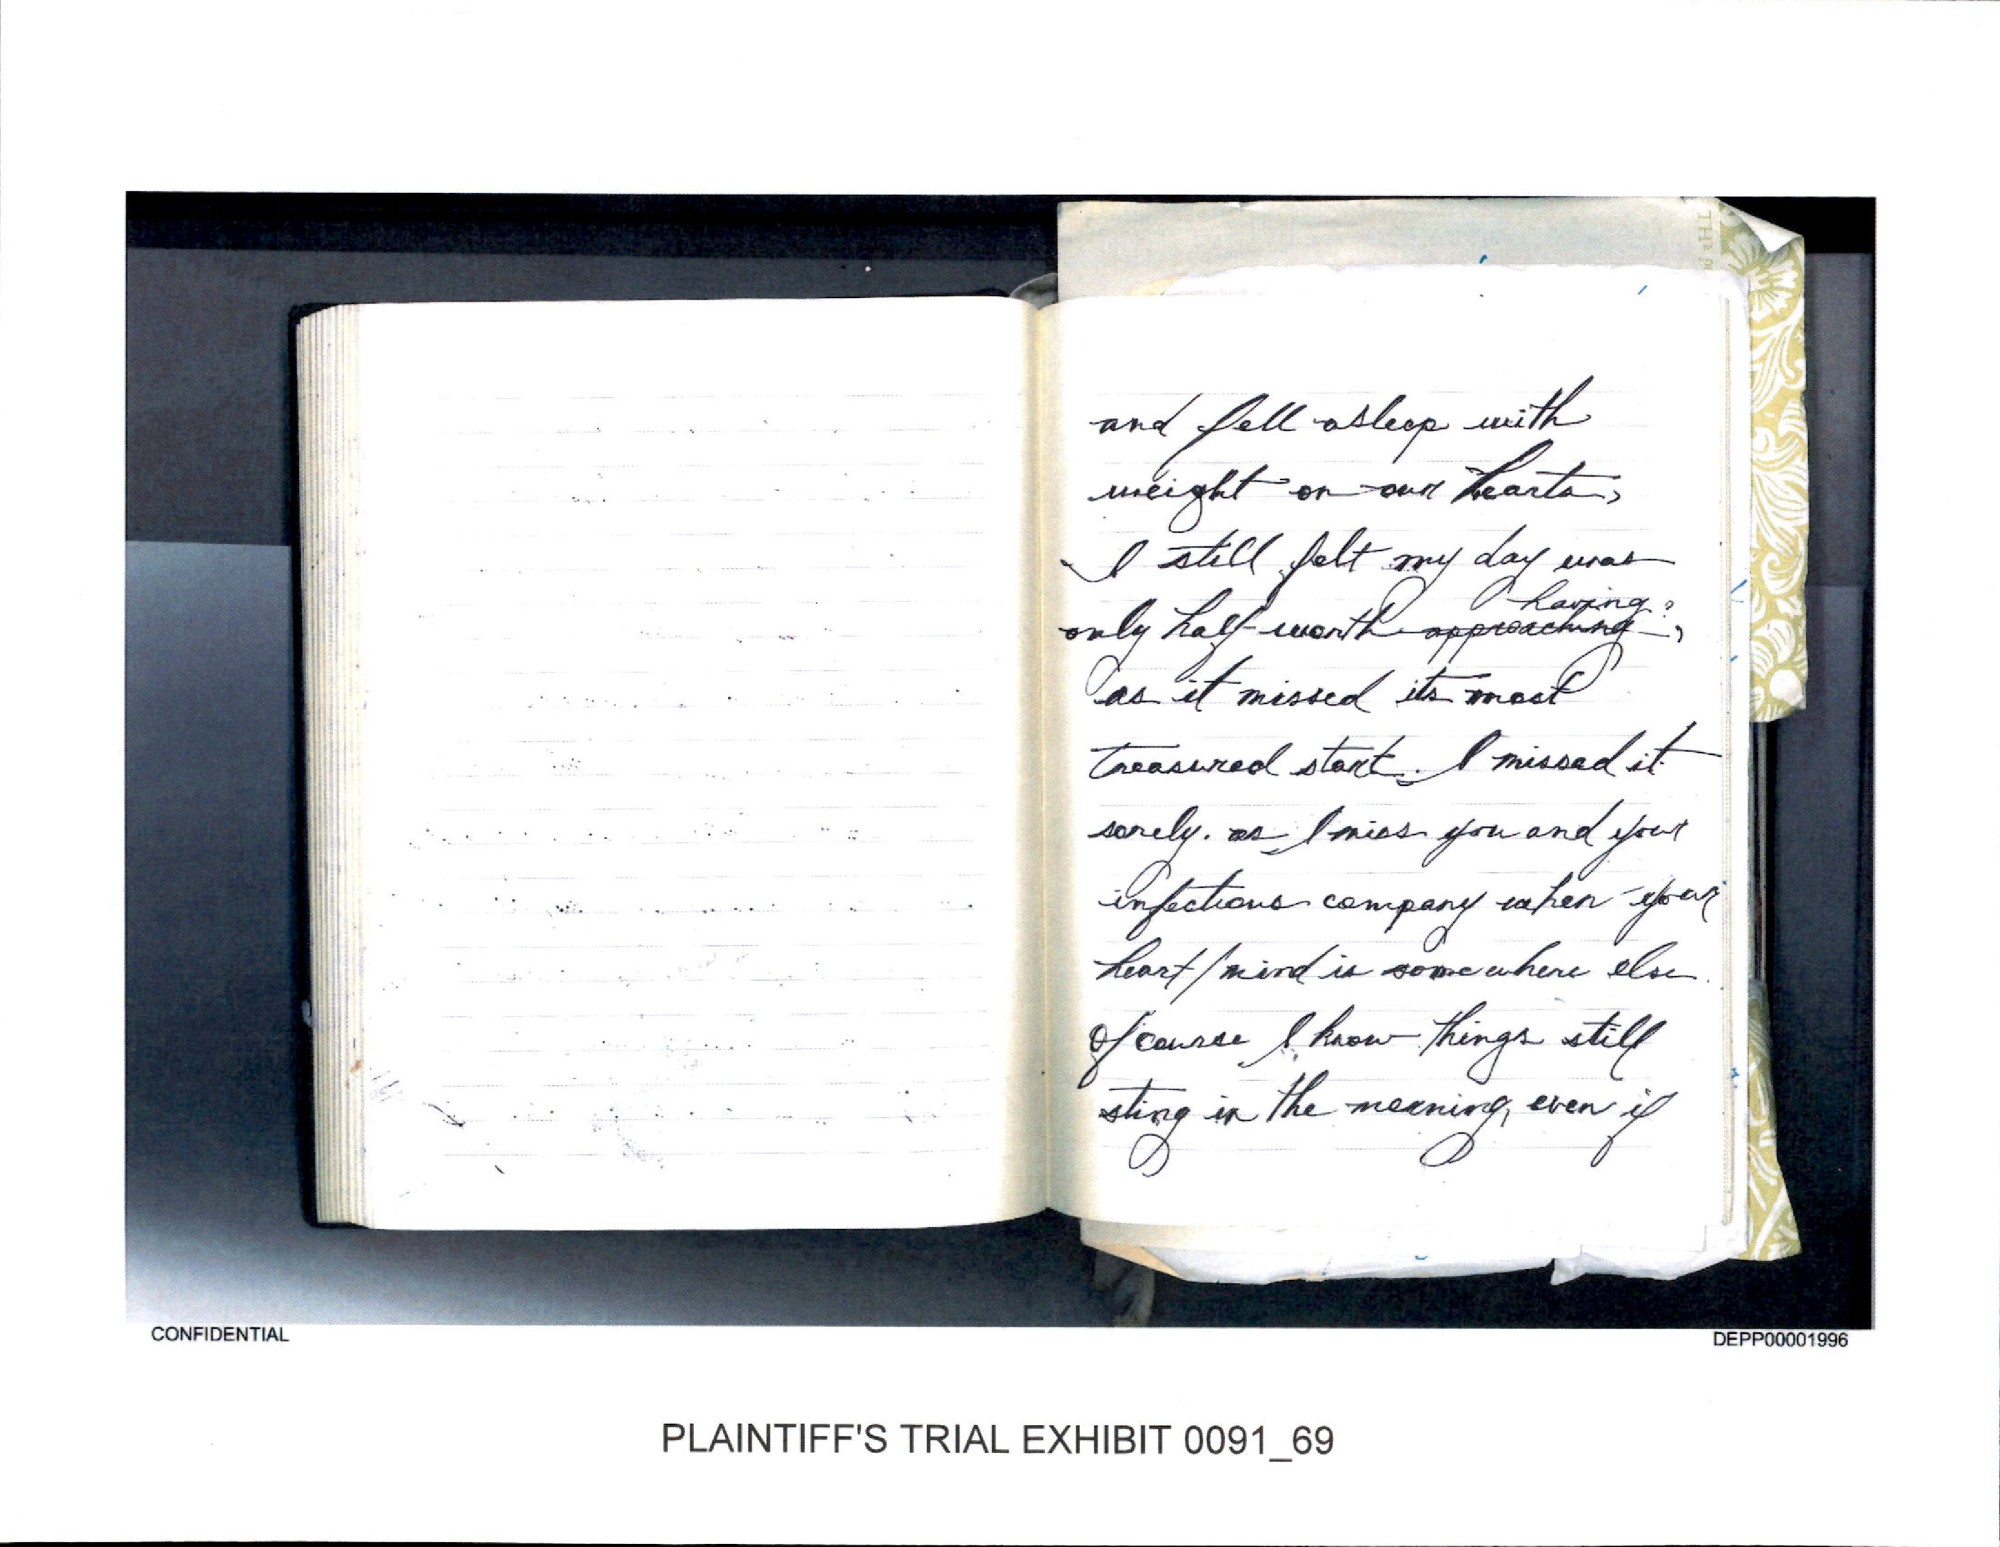 THE
and fell asleep with
weight on our hearts,
I still felt my day was
having?
only half-worth ~~approaching~~,
as it missed its most
treasured start. I missed it
sorely. as I miss you and your
infectious company when your
heart/mind is somewhere else.
Of course I know things still
sting in the morning, even if
CONFIDENTIAL
DEPP00001996
PLAINTIFF'S TRIAL EXHIBIT 0091_69